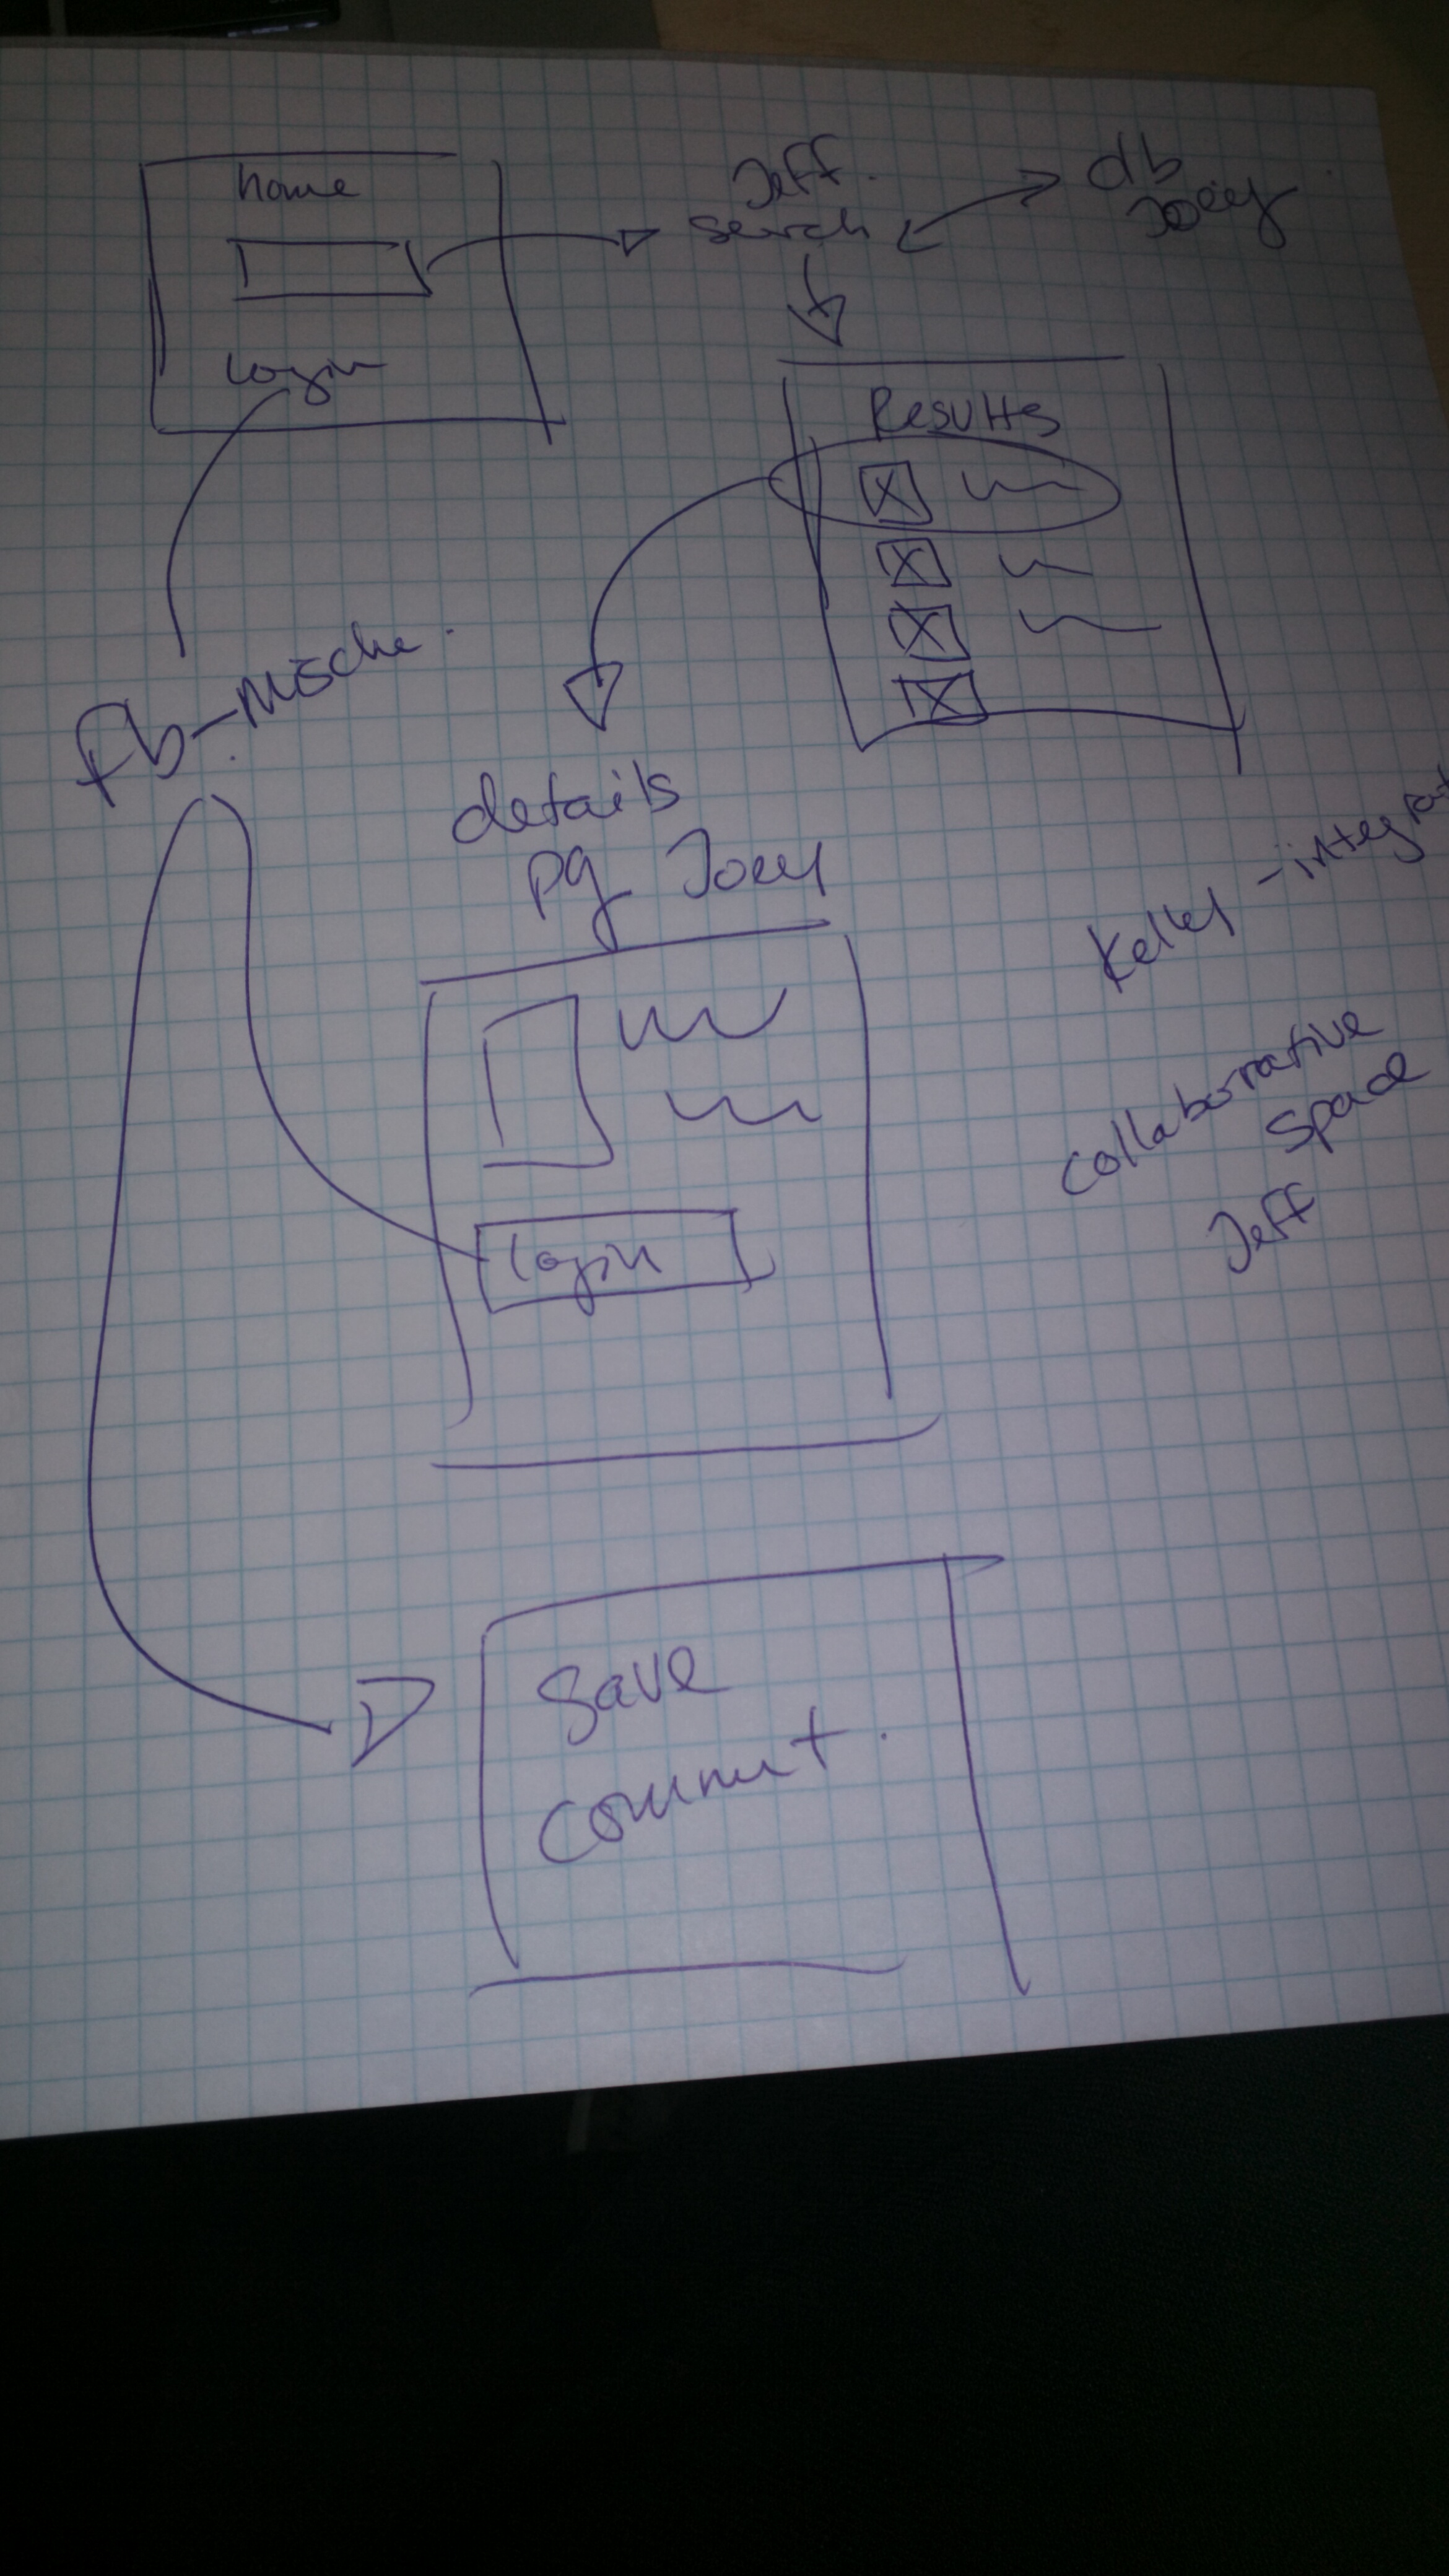 home
login
Jeff.
search
db
Joey
Results
fb-
details
pg Joey
login
Kelley - integrat
collaborrative
space
Jeff
save
comment.